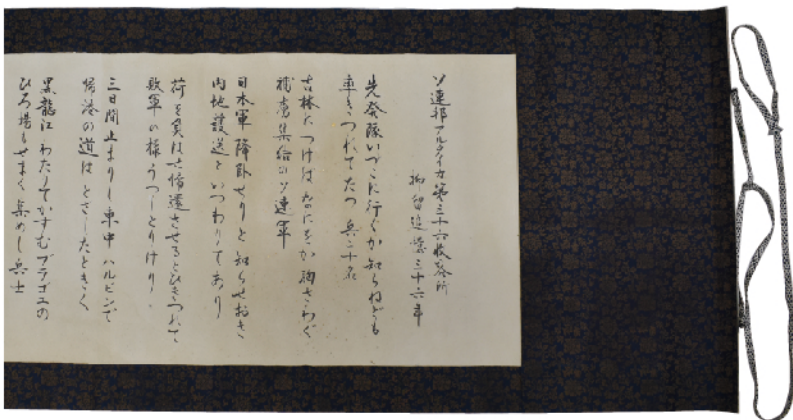 ソ連邦アルタイカ第三十六收容所
抑留追憶三十六年
先発隊いづこに行くか知らねども
率きつれてたつ 兵二十名
吉林につけば 胸さわぐ
捕虜集結のソ連軍
日本軍降卧せりと 知らせおき
内地護送と いつわりてあり
荷を負はせ帰還させるとひきつれて
敗軍の様 うつしとりけり
三日間止まりし車中 ハルピンで
帰港の道は とざしたときく
黒龍江 わたりてかすむ ブラゴエの
ひろ場もせまく 集めし兵士